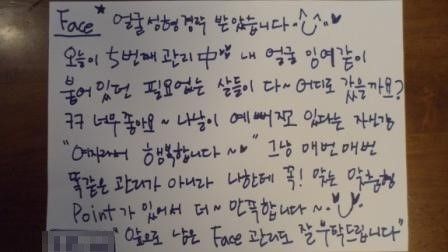 Face* 얼굴성형경락 받았습니다 ^ᴗ^♥
오늘이 5번째 관리中인 내 얼굴 임여같이
붙어 있던 필요없는 살들이 다~ 어디로 갔을까요?
ㅋㅋ 너무 좋아요~ 나날이 예뻐지고 있다는 자신감
"여자라서 행복합니다~♥" 그냥 매번매번
똑같은 관리가 아니라 나한테 꼭! 맞는 맞춤형
Point가 있어서 더~ 만족합니다~
"앞으로 남은 Face 관리도 잘 부탁드립니다"